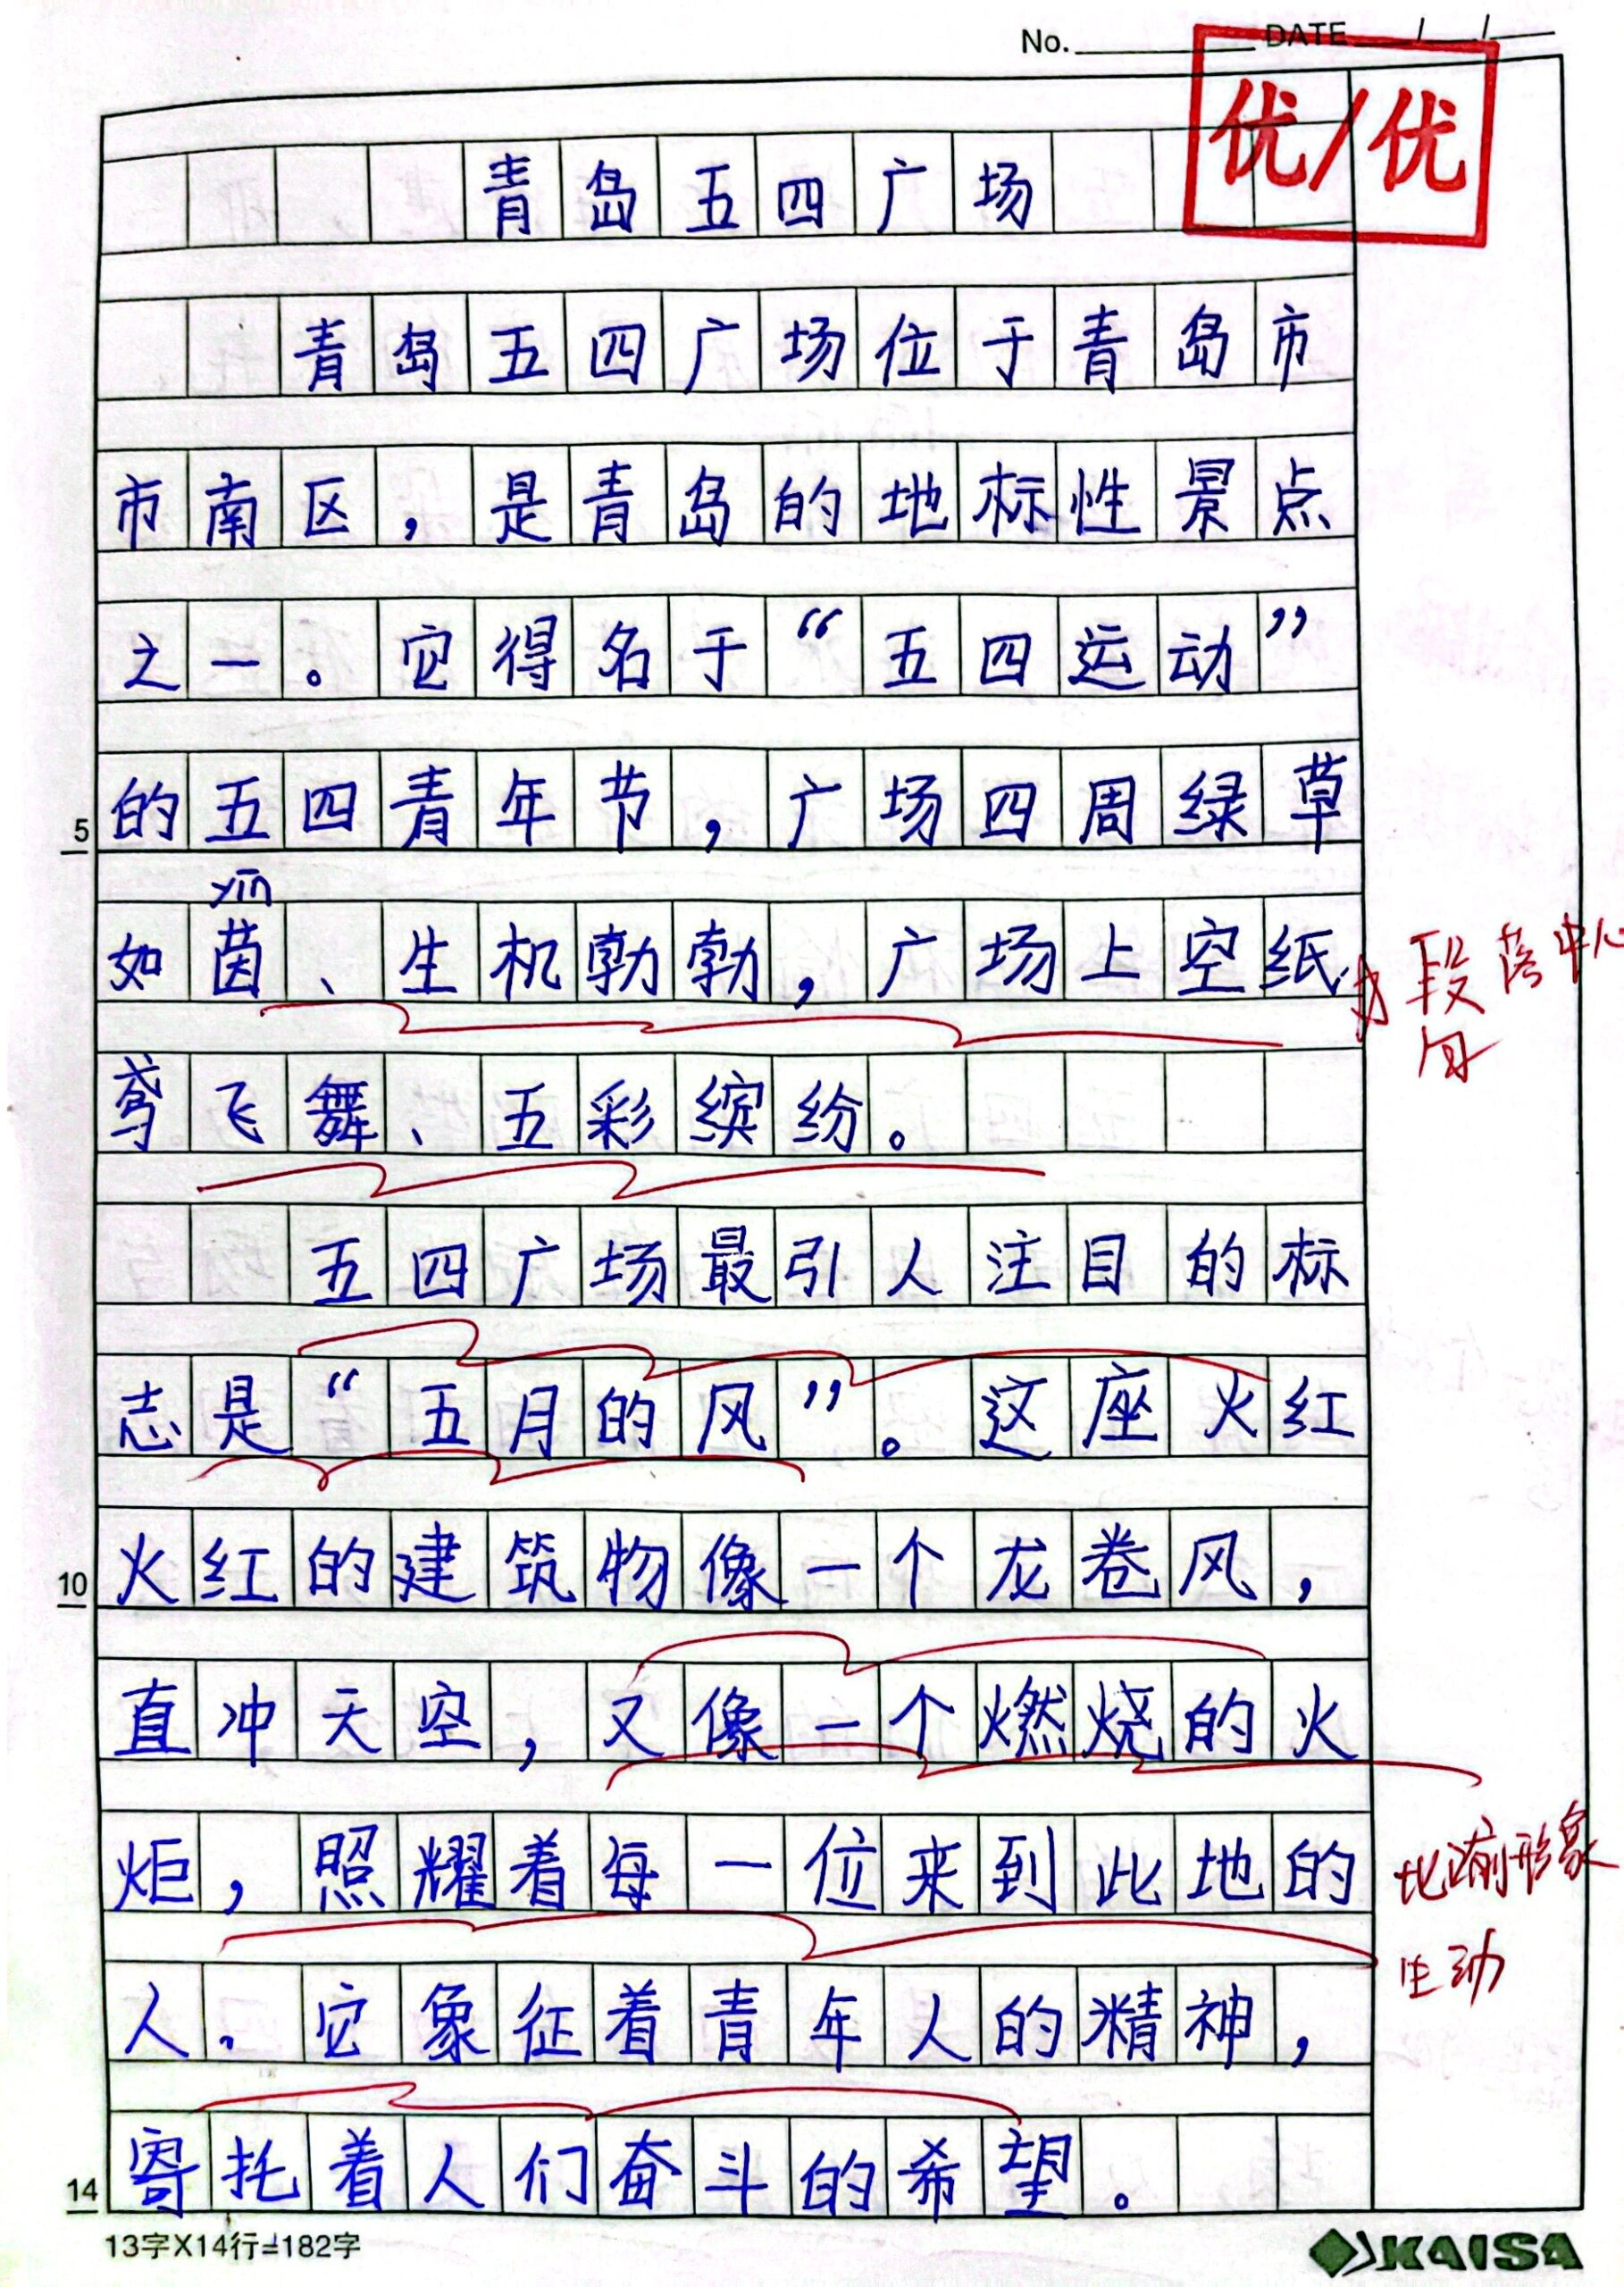 No. DATE / /
优/优
青岛五四广场
青岛五四广场位于青岛市
市南区，是青岛的地标性景点
之一。它得名于“五四运动”
5 的五四青年节，广场四周绿草
yīn
如茵、生机勃勃，广场上空纸
段落中心句
鸢飞舞、五彩缤纷。
五四广场最引人注目的标
志是“五月的风”。这座火红
10 火红的建筑物像一个龙卷风，
直冲天空，又像一个燃烧的火
炬，照耀着每一位来到此地的
比喻形象
生动
人。它象征着青年人的精神，
14 寄托着人们奋斗的希望。
13字X14行=182字
KAISA